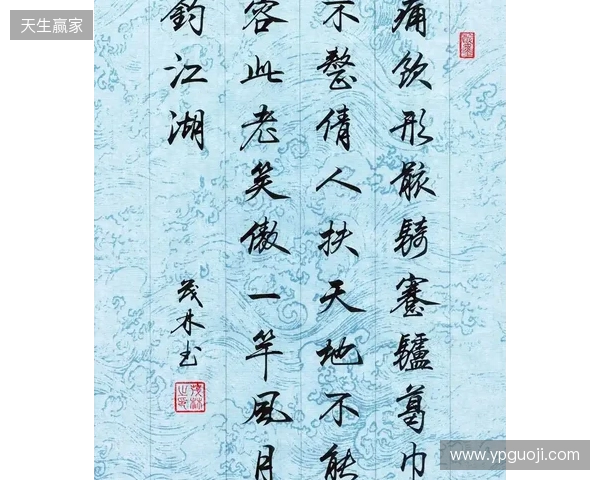 天生赢家
痛饮形骸騎蹇驢葛巾
不整倩人扶天地不能
容此老笑傲一竿風月
釣江湖
茂林书
www.ypguoji.com